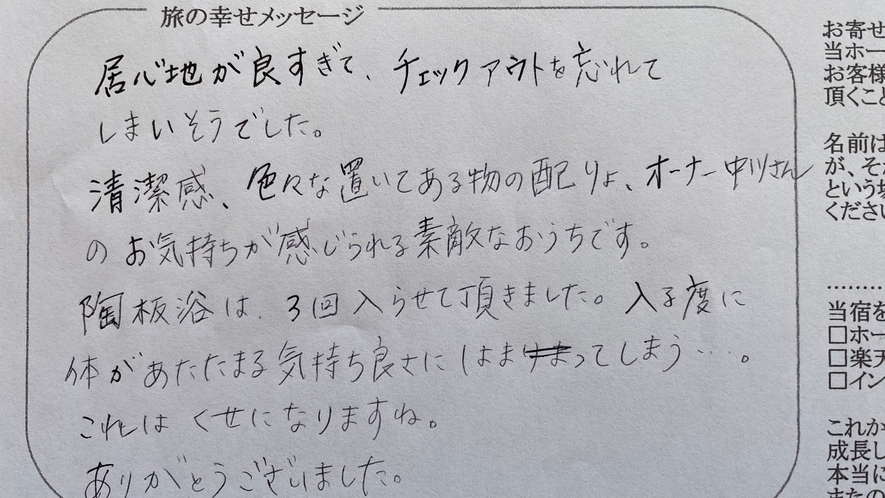 旅の幸せメッセージ
居心地が良すぎて、チェックアウトを忘れて
しまいそうでした。
清潔感、色々な置いてある物の配りょ、オーナー中川さん
のお気持ちが感じられる素敵なおうちです。
陶板浴は、3回入らせて頂きました。入る度に
体があたたまる気持ち良さにはまってしまう…。
これはくせになりますね。
ありがとうございました。
お寄せ
当ホー
お客様
頂くこと
名前は
が、そ
という場
くださ
………
当宿を
□ホー
□楽天
□イン
これか
成長し
本当に
またの